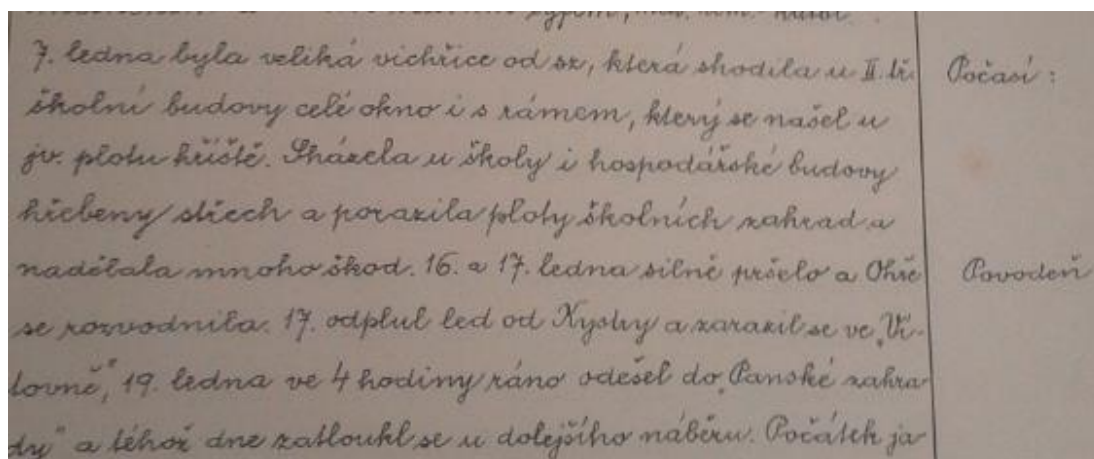 7. ledna byla veliká vichřice od sz, která shodila u II. tř.
Počasí:
školní budovy celé okno i s rámem, který se našel u
jv. plotu hříště. Sházela u školy i hospodářské budovy
hřebeny střech a porazila ploty školních zahrad a
nadělala mnoho škod. 16. a 17. ledna silně pršelo a Ohře
Povodeň
se rozvodnila. 17. odplul led od Kystry a zarazil se ve „Vi-
lovně", 19. ledna ve 4 hodiny ráno odešel do „Panské zahra-
dy" a téhož dne zatloukl se u dolejšího náběru. Počátek ja-